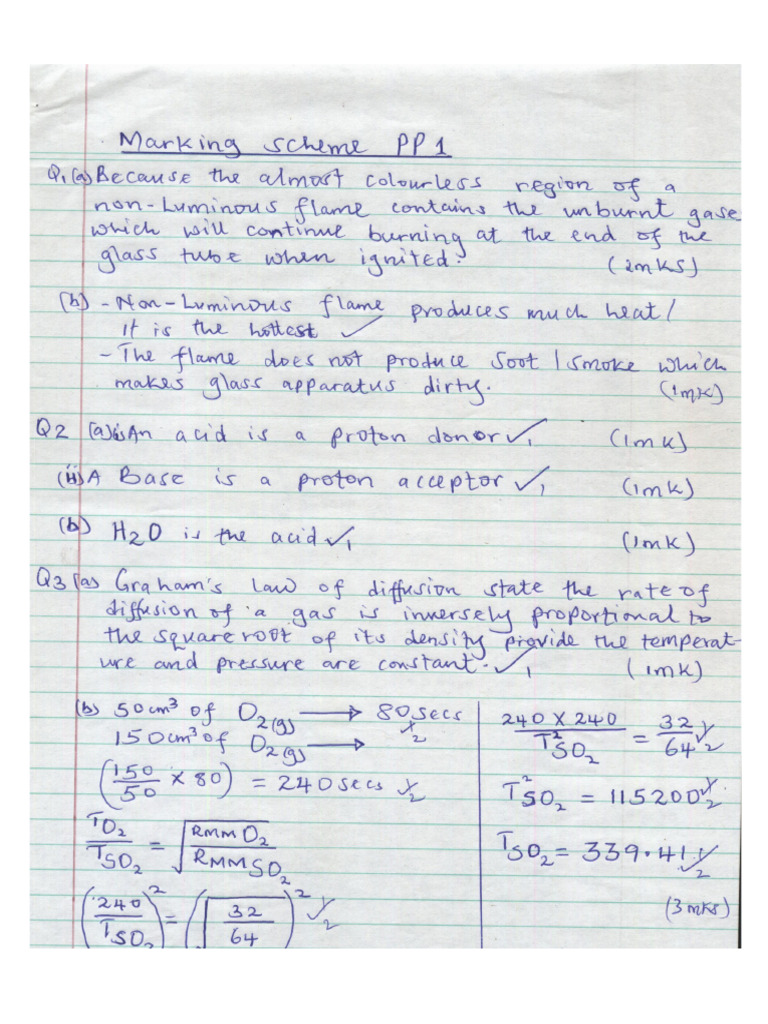 Marking scheme PP1
Q1(a) Because the almost colourless region of a
non-Luminous flame contains the unburnt gase
which will continue burning at the end of the
glass tube when ignited. (2mks)
(b) - Non-Luminous flame produces much heat/
it is the hottest ✓
- The flame does not produce soot / smoke which
makes glass apparatus dirty. (1mk)
Q2 (a)(i) An acid is a proton donor ✓1 (1mk)
(ii) A Base is a proton acceptor ✓1 (1mk)
(b) H2O is the acid ✓1 (1mk)
Q3 (a) Graham's Law of diffusion state the rate of
diffusion of a gas is inversely proportional to
the square root of its density provide the temperat-
ure and pressure are constant. ✓1 (1mk)
(b) 50cm³ of O2(g) → 80secs
150cm³ of O2(g) → ✓½
(150/50 × 80) = 240secs ✓½
TO2/TSO2 = √(RMM O2/RMM SO2)
(240/TSO2)² = (√(32/64))² ✓½
240 × 240/T²SO2 = 32/64 ✓½
T²SO2 = 115200 ✓½
TSO2 = 339.41 ✓½
(3mks)